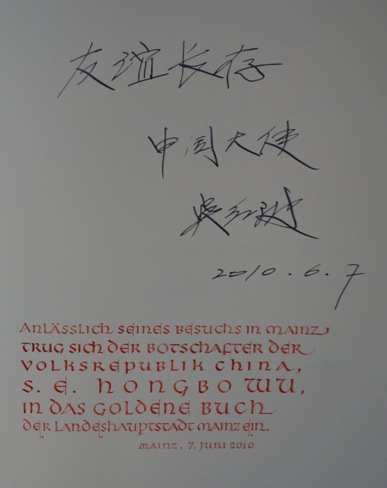 友谊长存
中国大使
吴红波
2010.6.7
ANLÄSSLICH SEINES BESUCHS IN MAINZ
TRUG SICH DER BOTSCHAFTER DER
VOLKSREPUBLIK CHINA,
S. E. HONGBO WU,
IN DAS GOLDENE BUCH
DER LANDESHAUPTSTADT MAINZ EIN.
MAINZ, 7. JUNI 2010